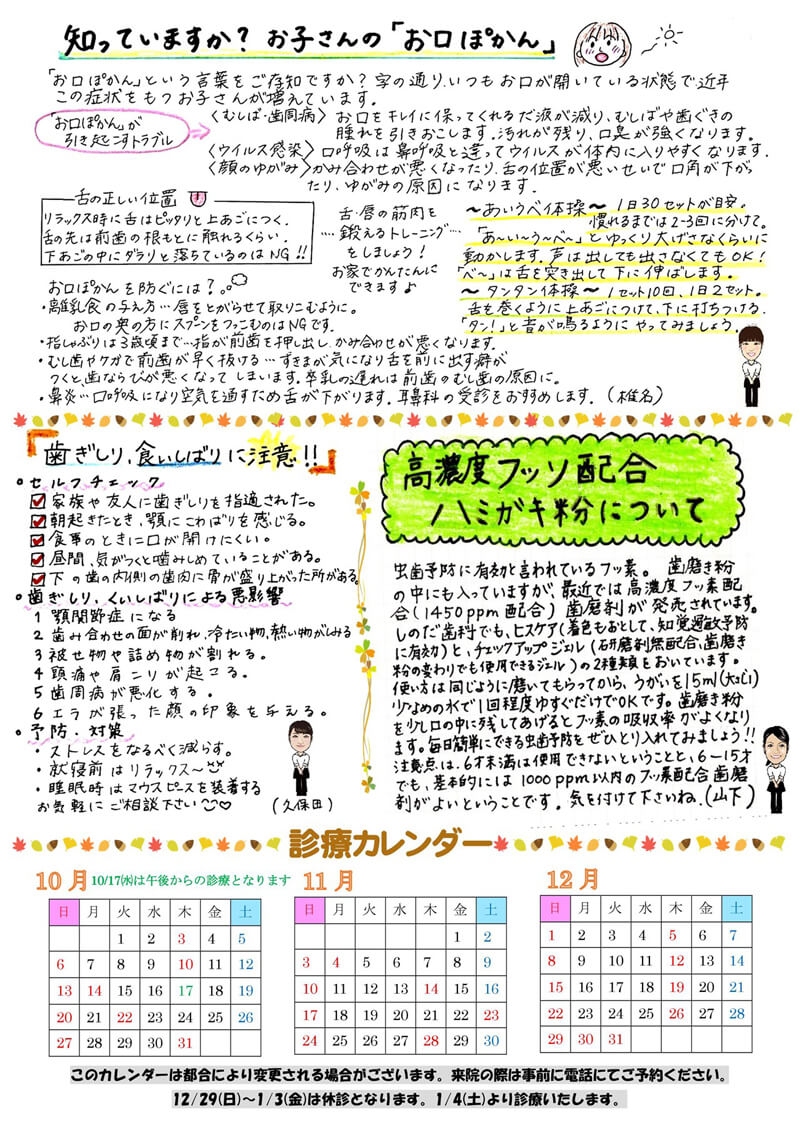 知っていますか? お子さんの「お口ぽかん」
「お口ぽかん」という言葉をご存知ですか?字の通り、いつもお口が開いている状態で、近年
この症状をもつお子さんが増えています。
「お口ぽかん」が
引き起こすトラブル
〈むしば・歯周病〉 お口をキレイに保ってくれるだ液が減り、むしばや歯ぐきの
腫れを引きおこします。汚れが残り、口臭が強くなります。
〈ウイルス感染〉口呼吸は鼻呼吸と違ってウイルスが体内に入りやすくなります.
〈顔のゆがみ〉かみ合わせが悪くなったり、舌の位置が悪いせいで口角が下が
ったり、ゆがみの原因になります.
舌の正しい位置
リラックス時に舌はピッタリと上あごにつく.
舌の先は前歯の根もとに触れるくらい.
下あごの中にダラリと落ちているのはNG!!
舌・唇の筋肉を
…鍛えるトレーニング…
をしましょう!
お家でかんたんに
できます♪
〜あいうべ体操〜 1日30セットが目安。
慣れるまでは2-3回に分けて。
「あ〜い〜う〜べ〜」とゆっくり大げさなくらいに
動かします.声は出しても出さなくてもOK!
「べ〜」は舌を突き出して下に伸ばします.
〜タンタン体操〜 1セット10回、1日2セット。
舌を巻くように上あごにつけて、下に打ちつける.
「タン!」と音が鳴るようにやってみましょう.
お口ぽかんを防ぐには?
・離乳食の与え方…唇をとがらせて取りこむように。
お口の奥の方にスプーンをつっこむのはNGです.
・指しゃぶりは3歳頃まで…指が前歯を押し出し、かみ合わせが悪くなります.
・むし歯やケガで前歯が早く抜ける…すきまが気になり舌を前に出す癖が
つくと、歯ならびが悪くなってしまいます.卒乳の遅れは前歯のむし歯の原因に。
・鼻炎…口呼吸になり空気を通すため舌が下がります.耳鼻科の受診をお勧めします.(椎名)
「歯ぎしり、食いしばりに注意!!」
○セルフチェック
☑家族や友人に歯ぎしりを指適された。
☑朝起きたとき、顎にこわばりを感じる。
☑食事のときに口が開けにくい。
☑昼間、気がつくと噛みしめていることがある。
☑下の歯の内側の歯肉に骨が盛り上がった所がある
○歯ぎしり、くいしばりによる悪影響
1 顎関節症になる
2 歯み合わせの面が削れ、冷たい物、熱い物がしみる
3 被せ物や詰め物が割れる。
4 頭痛や肩こりが起こる。
5 歯周病が悪化する。
6 エラが張った顔の印象を与える。
○予防・対策
・ストレスをなるべく減らす。
・就寝前はリラックス〜
・睡眠時はマウスピースを装着する
お気軽にご相談下さい
(久保田)
高濃度フッソ配合
ハミガキ粉について
虫歯予防に有効と言われているフッ素。 歯磨き粉
の中にも入っていますが、最近では高濃度フッ素配
合(1450ppm配合)歯磨剤が発売されています。
しのだ歯科でも、ヒスケア(着色もおとして、知覚過敏予防
に有効)と、チェックアップジェル(研磨剤無配合、歯磨き
粉の変わりでも使用できるジェル)の2種類をおいています。
使い方は同じように磨いてもらってから、うがいを15ml(大さじ1)
少なめの水で1回程度ゆすぐだけでOKです。歯磨き粉
を少し口の中に残してあげるとフッ素の吸収率がよくなり
ます。毎日簡単にできる虫歯予防をぜひとり入れてみましょう!!
注意点は、6才未満は使用できないということと、6〜15才
でも、基本的には1000ppm以内のフッ素配合歯磨
剤がよいということです。気を付けて下さいね。(山下)
診療カレンダー
10月 10/17㈬は午後からの診療となります
日 月 火 水 木 金 土
1 2 3 4 5
6 7 8 9 10 11 12
13 14 15 16 17 18 19
20 21 22 23 24 25 26
27 28 29 30 31
11月
日 月 火 水 木 金 土
1 2
3 4 5 6 7 8 9
10 11 12 13 14 15 16
17 18 19 20 21 22 23
24 25 26 27 28 29 30
12月
日 月 火 水 木 金 土
1 2 3 4 5 6 7
8 9 10 11 12 13 14
15 16 17 18 19 20 21
22 23 24 25 26 27 28
29 30 31
このカレンダーは都合により変更される場合がございます。来院の際は事前に電話にてご予約ください。
12/29(日)〜1/3(金)は休診となります。1/4(土)より診療いたします。